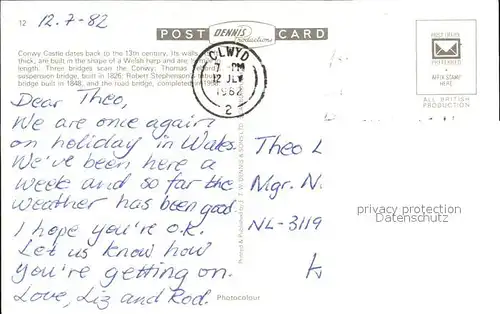 12
12.7-82
POST DENNIS Productions CARD
Conwy Castle dates back to the 13th century. Its walls
thick, are built in the shape of a Welsh harp and are
length. Three bridges span the Conwy; Thomas
suspension bridge, built in 1826; Robert Stephenson's
bridge built in 1848, and the road bridge, completed
CLWYD
7-PM
12 JLY
1982
2
POST OFFICE
PREFERRED
AFFIX STAMP
HERE
ALL BRITISH
PRODUCTION
Dear Theo,
We are once again
on holiday in Wales.
We've been here a
week and so far the
weather has been good.
I hope you're O.K.
Let us know how
you're getting on.
Love, Liz and Rod.
Printed & Published by E. T. W. DENNIS & SONS LTD
Photocolour
Theo L
Mgr. N.
NL-3119
privacy protection
Datenschutz